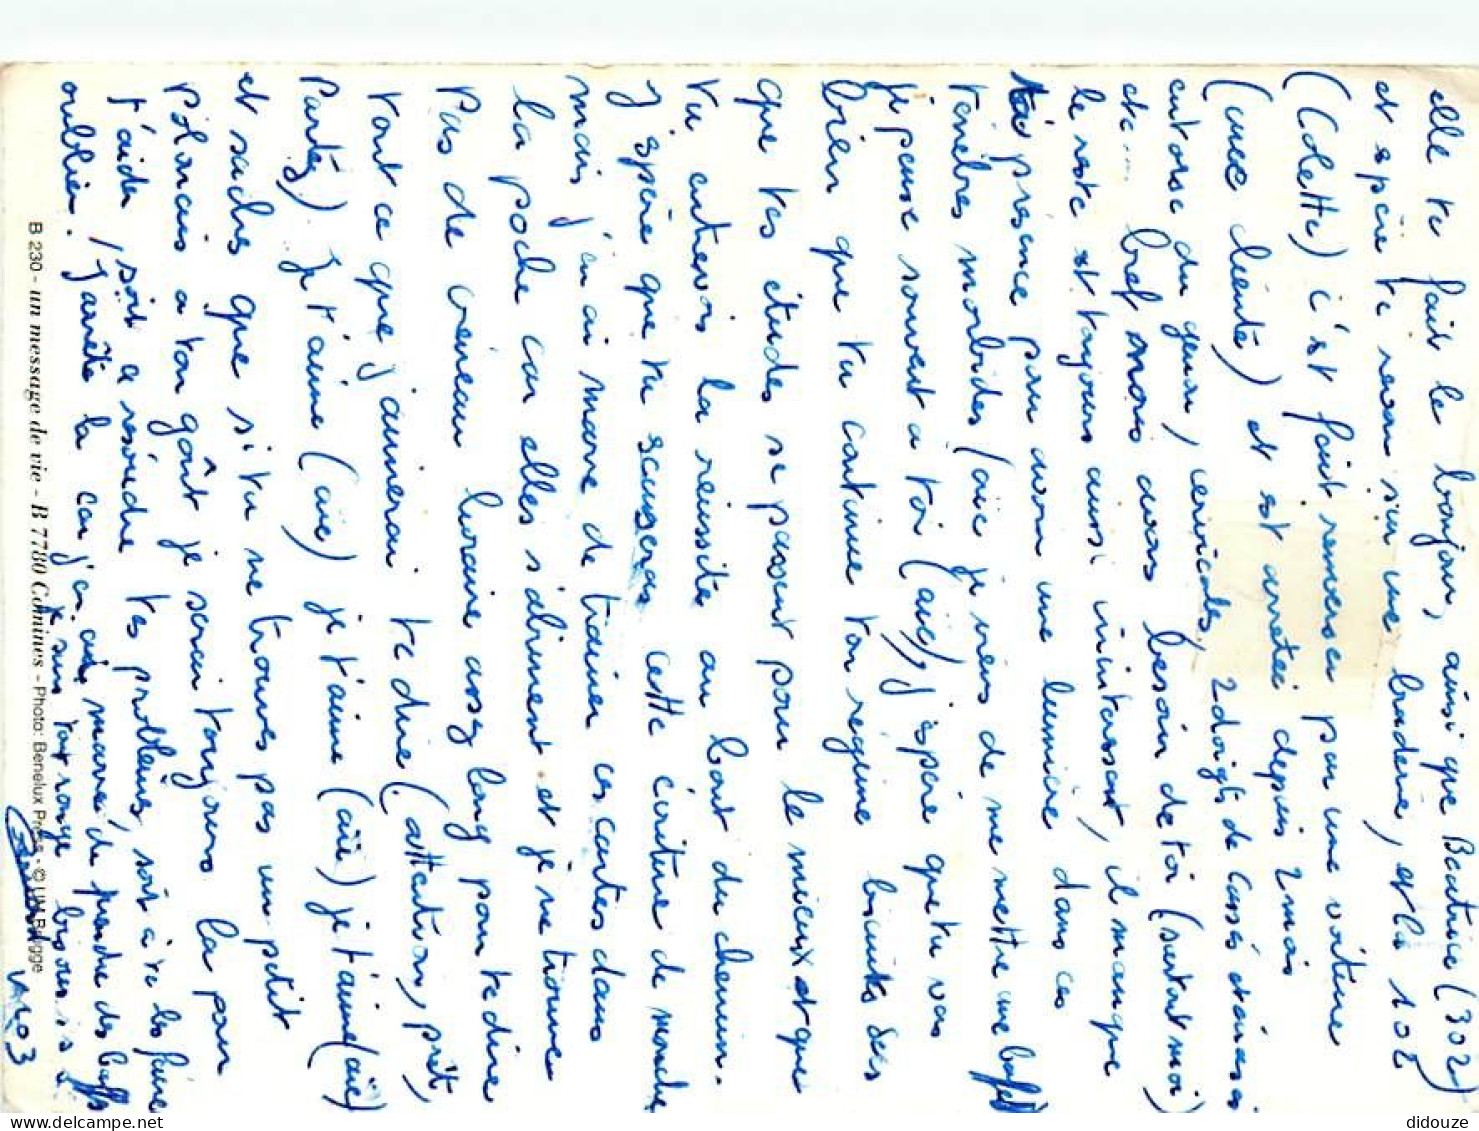 elle te fait le bonjour, ainsi que Béatrice (302)
et espère te revoir sur une braderie, et la 102
(Colette) s'est fait renverser par une voiture
(une cliente) et est arretée depuis 2 mois
entorse du genou, cervicales, 2 doigts de cassés
etc... bref nous avons besoin de toi (surtout moi)
le reste est toujours aussi inintéressant, il manque
ta présence pour avoir une lumière dans ces
ténèbres morbides (aïe je viens de me mettre une baffe)
je pense souvent a toi (aïe), j'espère que tu vas
bien que tu continue ton régime biscuits secs
que tes études se passent pour le mieux et que
tu entrevois la réussite au bout du chemin.
J'espère que tu scuseras cette écriture de mouche
mais j'en ai marre de trainer ces cartes dans
la poche car elles s'abiment et je ne trouve
pas de créneau horaire assez long pour te dire
tout ce que j'aimerai te dire (attention, prêt,
Partez) Je t'aime (aïe) je t'aime (aïe) je t'aime (aïe)
et saches que si tu ne trouves pas un petit
Polonais a ton goût je serai toujours la pour
t'aider, soit a résoudre tes problèmes, soit a te les faire
oublier. J'arrête la car j'en ai marre de prendre des baffes
je suis tout rouge bisous
V 103
B 230 - un message de vie - B 7780 Comines - Photo: Benelux Press - © Brügge
delcampe.net
didouze